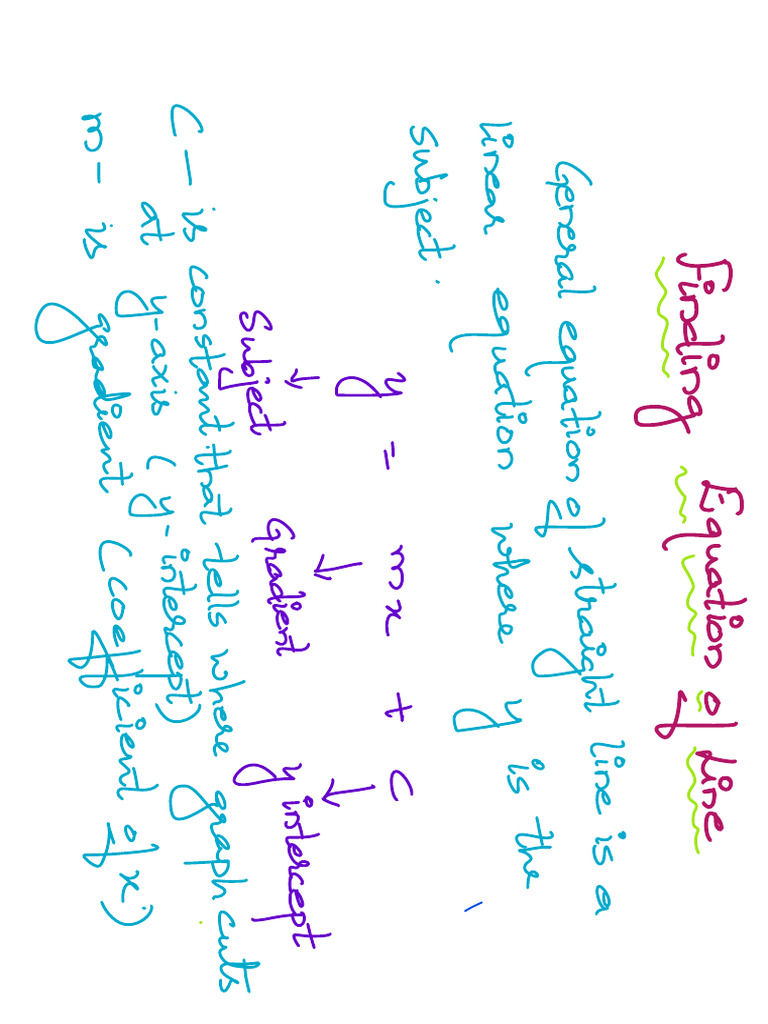 Finding Equation of Line
General equation of straight line is a
linear equation where y is the
subject.
y = mx + c
Subject Gradient y intercept
C - is constant that tells where graph cuts
at y-axis (y-intercept)
m - is gradient (coefficient of x)